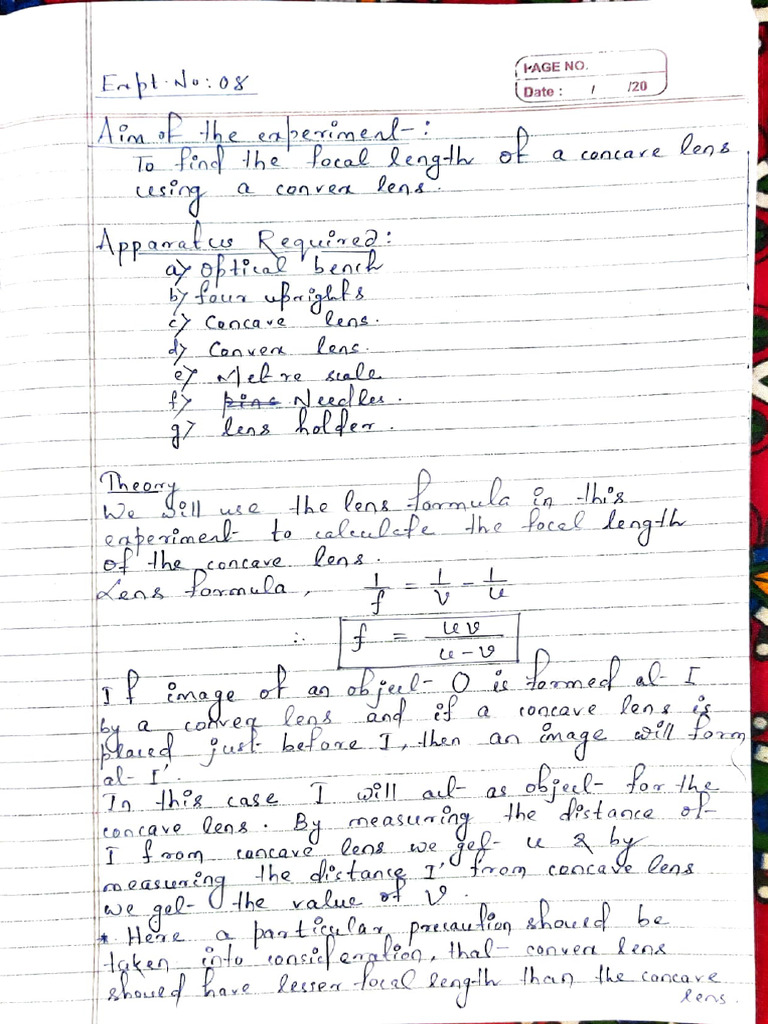 Expt. No: 08
PAGE NO.
Date : / /20
Aim of the experiment-:
To find the focal length of a concave lens
using a convex lens.
Apparatus Required:
a) Optical bench
b) four uprights
c) Concave lens.
d) Convex lens.
e) Metre scale
f) pins Needles.
g) lens holder.
Theory
We will use the lens formula in this
experiment to calculate the focal length
of the concave lens.
Lens formula, 1/f = 1/v - 1/u
∴ f = uv/u-v
If image of an object O is formed at I
by a convex lens and if a concave lens is
placed just before I, then an image will form
at I'.
In this case I will act as object for the
concave lens. By measuring the distance of
I from concave lens we get u & by
measuring the distance I' from concave lens
we get the value of v.
* Here a particular precaution should be
taken into consideration, that convex lens
should have lesser focal length than the concave
lens.